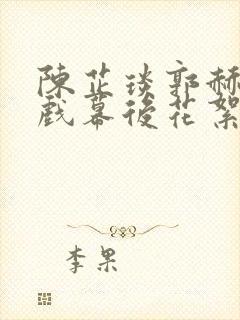 陳芷琰郭赫
戲幕後花絮
李果